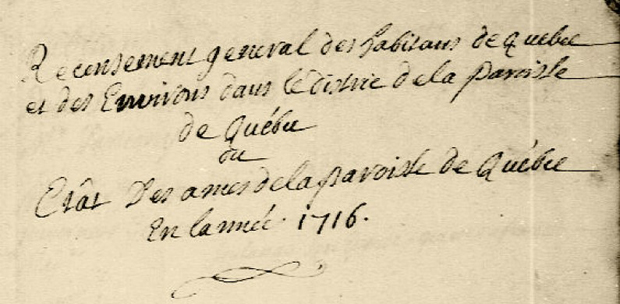 Recensement general des habitans de Quebec
et des Environs dans le distric de la paroisse
de Québec
ou
Etât Des ames de la paroisse de Québec
En l'année. 1716.